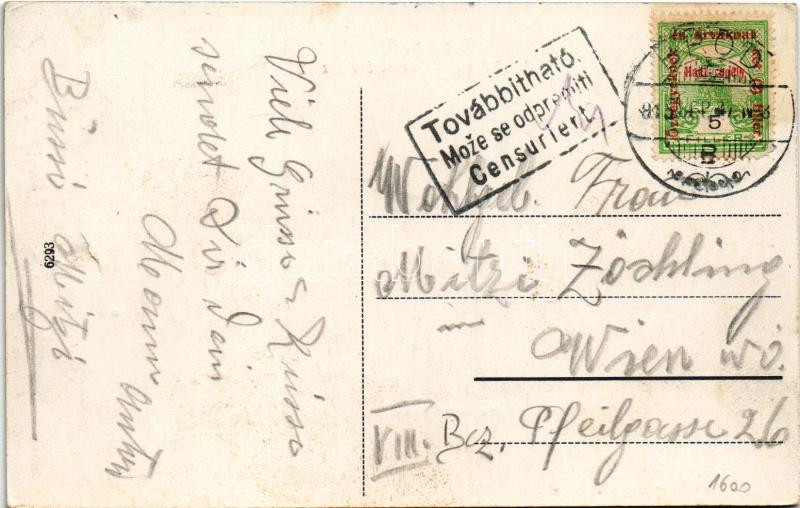 Viele Grüsse u Küsse
sendet Dir Dein
Mann
Bussi Mitzi
6293
Továbbitható.
Može se odpremiti
Censuriert.
Hadi segély
5
Wohlgeb. Frau
Mitzi Zöchling
in
Wien
VIII. Bez. Pfeilgasse 26
1600